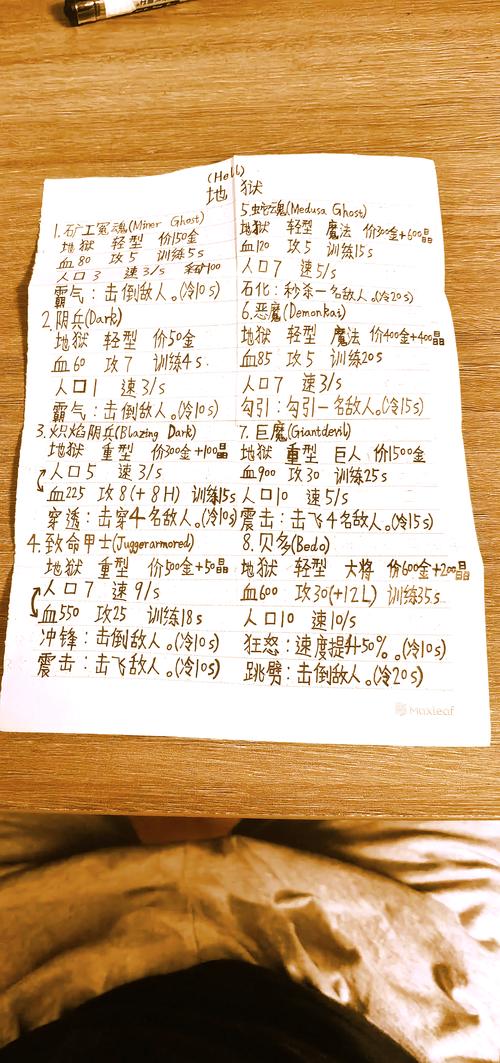 (Hell)
地 狱
1.矿工冤魂(Miner Ghost)
地狱 轻型 价150金
血80 攻5 训练5s
人口3 速3/s
霸气：击倒敌人。(冷10s)
2.阴兵(Dark)
地狱 轻型 价50金
血60 攻7 训练4s.
人口1 速3/s
霸气：击倒敌人。(冷10s)
3.炽焰阴兵(Blazing Dark)
地狱 重型 价300金+100晶
人口5 速3/s
血225 攻8(+8H) 训练15s
穿透：击穿4名敌人。(冷10s)
4.致命甲士(Juggerarmored)
地狱 重型 价500金+50晶
人口7 速9/s
血550 攻25 训练18s
冲锋：击倒敌人。(冷10s)
震击：击飞敌人。(冷10s)
5.蛇魂(Medusa Ghost)
地狱 轻型 魔法 价300金+600晶
血120 攻5 训练15s
人口7 速5/s
石化：秒杀一名敌人。(冷20s)
6.恶魔(Demonkai)
地狱 轻型 魔法 价400金+400晶
血85 攻5 训练20s
人口7 速3/s
勾引：勾引一名敌人。(冷15s)
7.巨魔(Giantdevil)
地狱 重型 巨人 价1500金
血900 攻30 训练25s
人口10 速5/s
震击：击飞4名敌人。(冷15s)
8.贝多(Bedo)
地狱 轻型 大将 价600金+200晶
血600 攻30(+12L) 训练35s
人口10 速10/s
狂怒：速度提升50%。(冷10s)
跳劈：击倒敌人。(冷20s)
Maxleaf